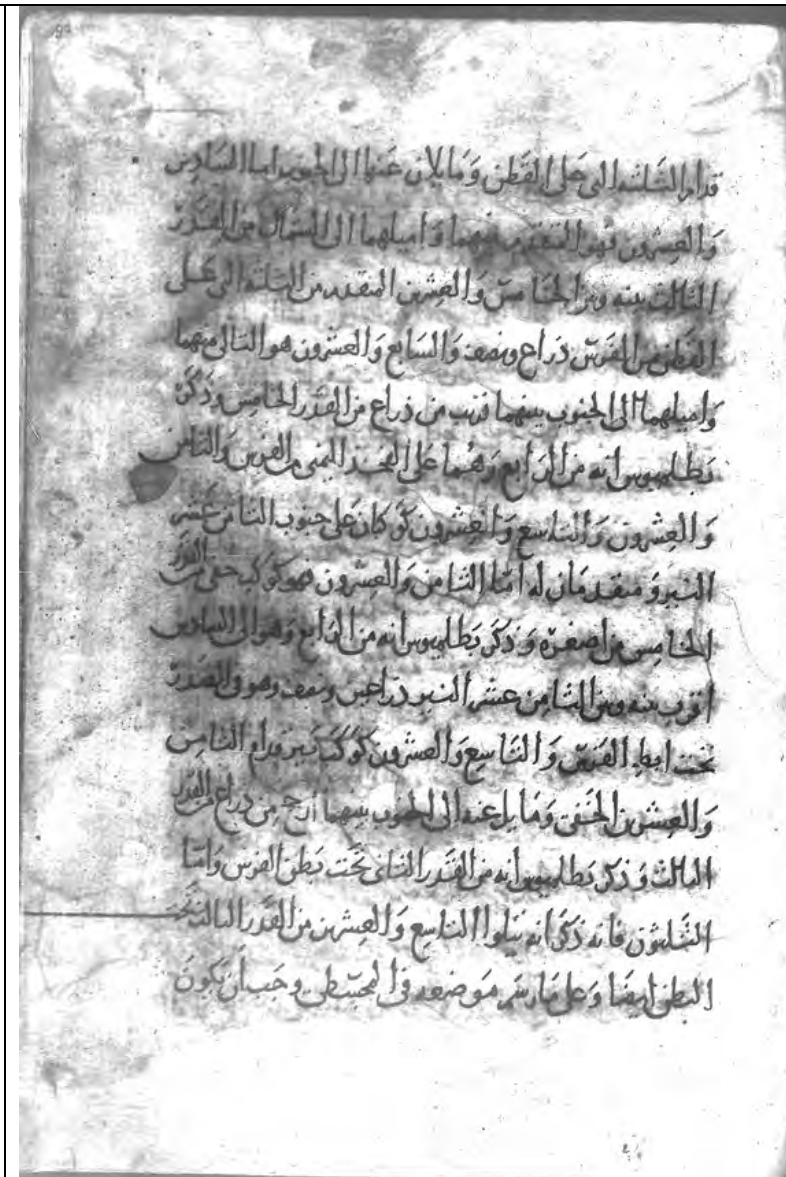 قدام الثلثه التى على القطن وما يلان عنها الى الجنوب اما السادس
والعشرون فهو المتقدم منهما واميلهما الى الشمال من القدر
الثالث بينه وبين الخامس والعشرين المتقدم من الثلثه التى على
القطن من الفرس ذراع ونصف والسابع والعشرون هو التالى منهما
واميلهما الى الجنوب بينهما قريب من ذراع من القدر الخامس وذكر
بطلميوس انه من الرابع وهما على الفخذ اليمنى من الفرس والثامن
والعشرون والتاسع والعشرون كوكبان على جنوب الثامن عشر
النير ومتقدمان له اما الثامن والعشرون فهو كوكب خفى من القدر
الخامس من اصغره وذكر بطلميوس انه من الرابع وهو الى السادس
اقرب بينه وبين الثامن عشر النير ذراعين ونصف وهو فى الصدر
تحت ابط الفرس والتاسع والعشرون كوكب نير وراء الثامن
والعشرين الخفى ومايل عنه الى الجنوب بينهما ارجح من ذراع من القدر
الثالث وذكر بطلميوس انه من القدر الثانى تحت بطن الفرس واما
الثلثون فانه ذكر انه يتلوا التاسع والعشرين من القدر الثالث تحت
البطن ايضا وعلى ما رسم موضعه فى المجسطى وجب ان يكون